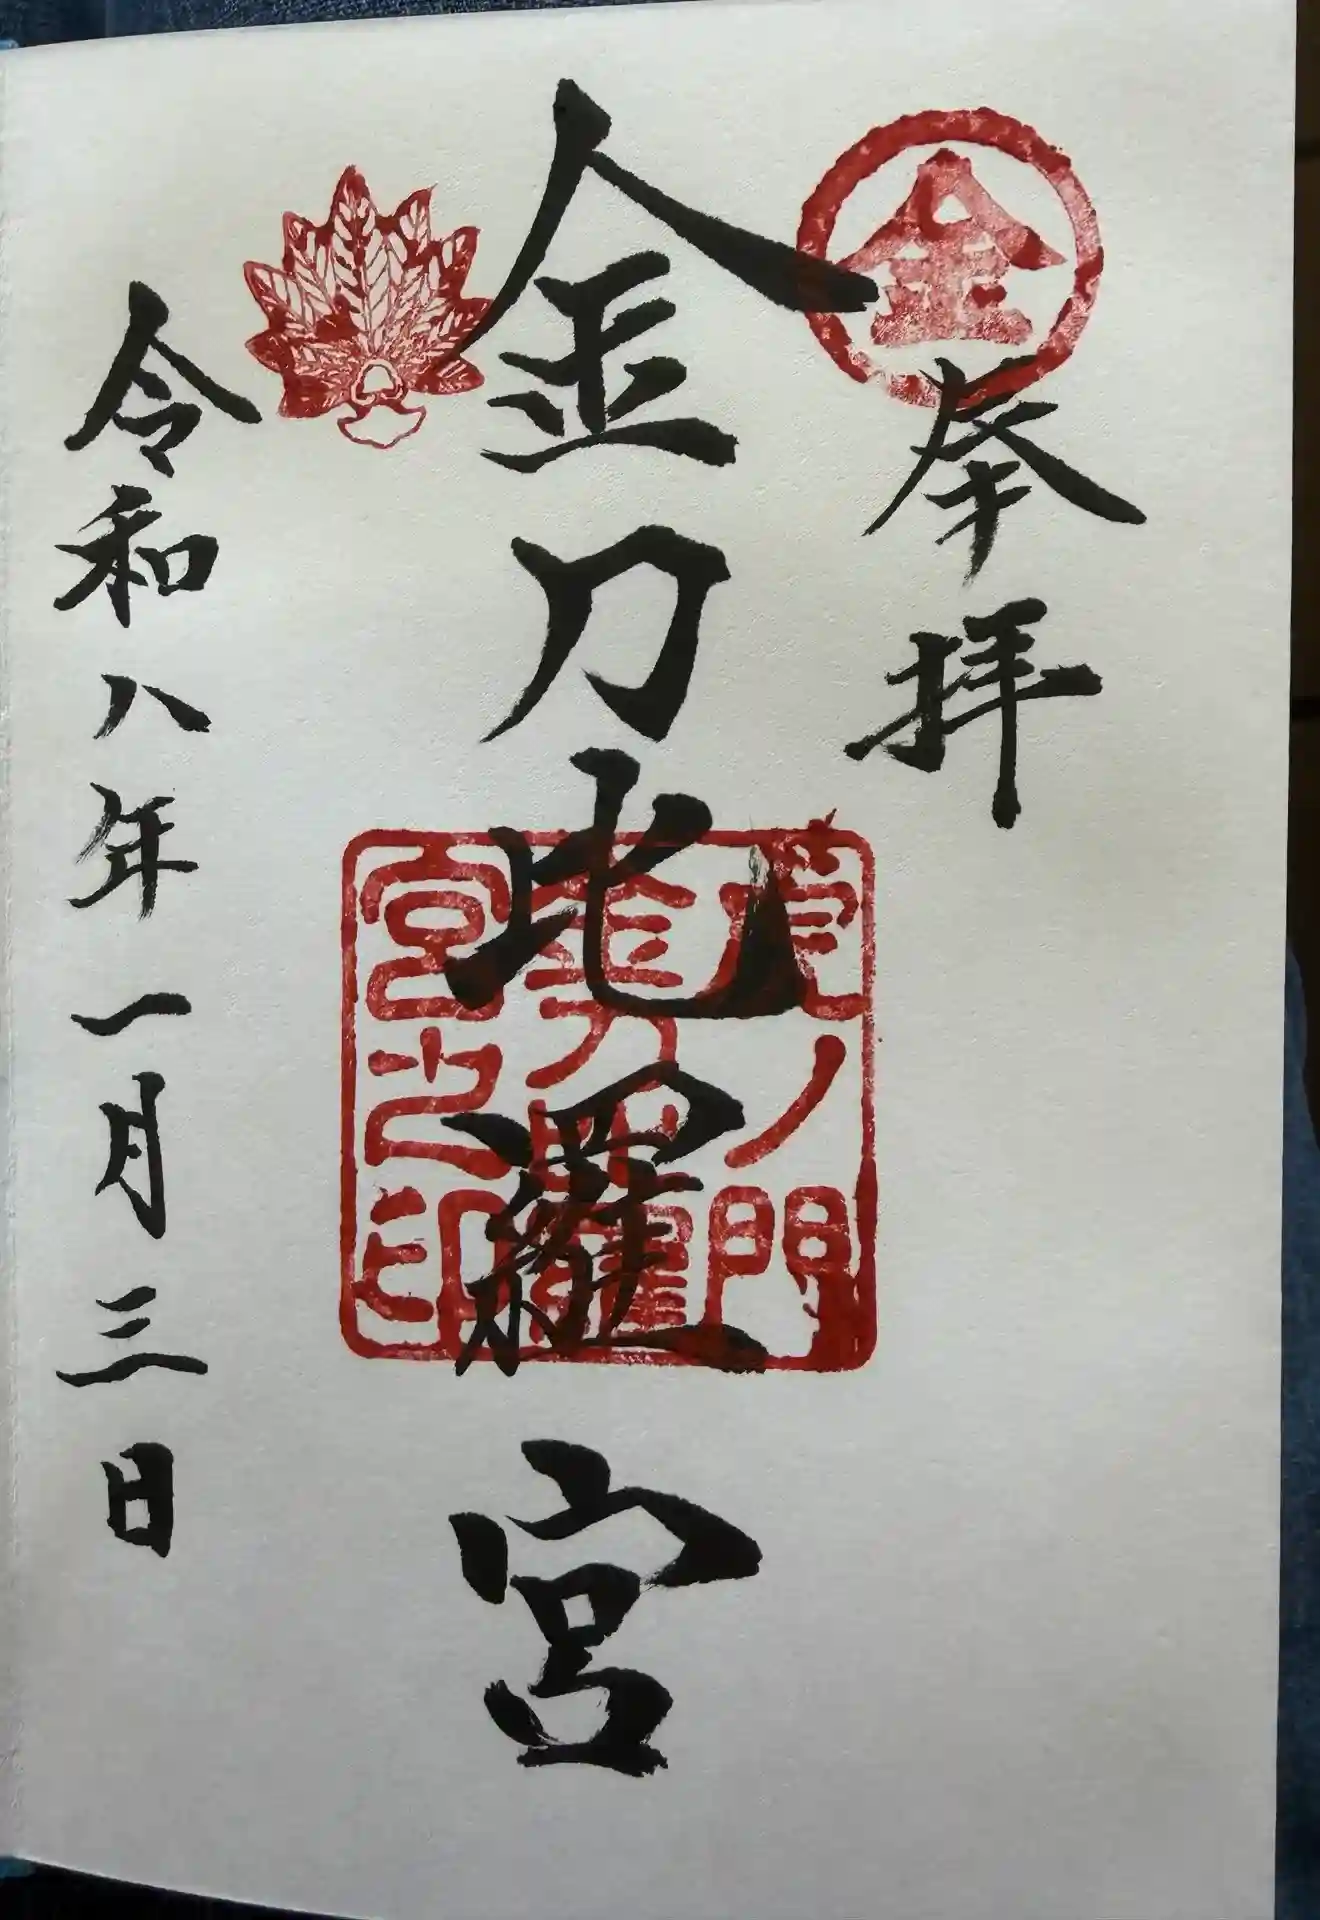 金
奉拝
金刀比羅宮
虎ノ門
金刀比羅
宮之印
令和八年一月三日